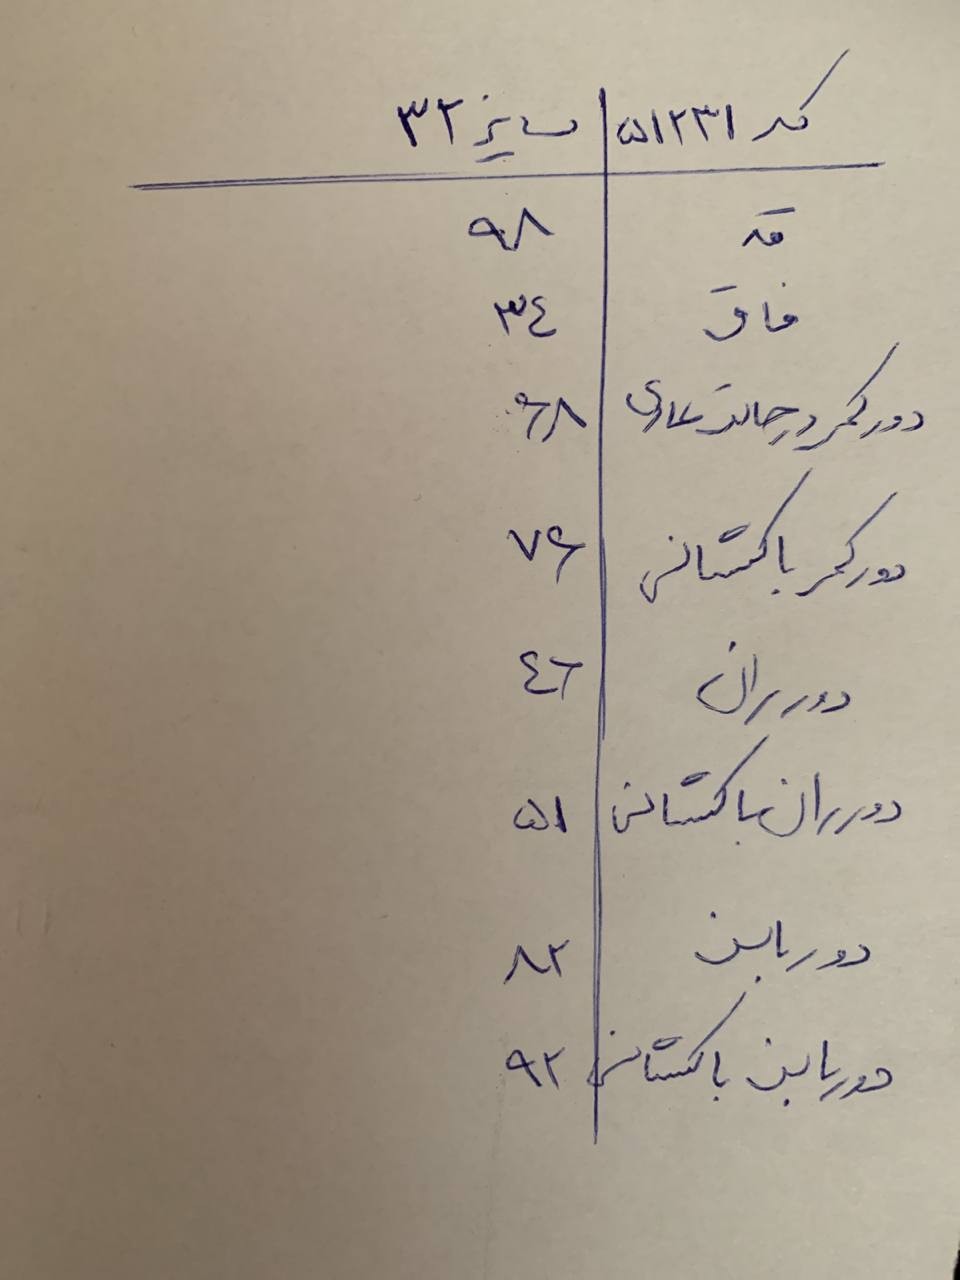 کد ۵۱۲۳۱ سایز ۳۲
قد ۹۸
فاق ۳۴
دور کمر در حالت عادی ۶۸
دور کمر با کشسانی ۷۶
دور ران ۴۶
دور ران با کشسانی ۵۱
دور باسن ۸۲
دور باسن با کشسانی ۹۲